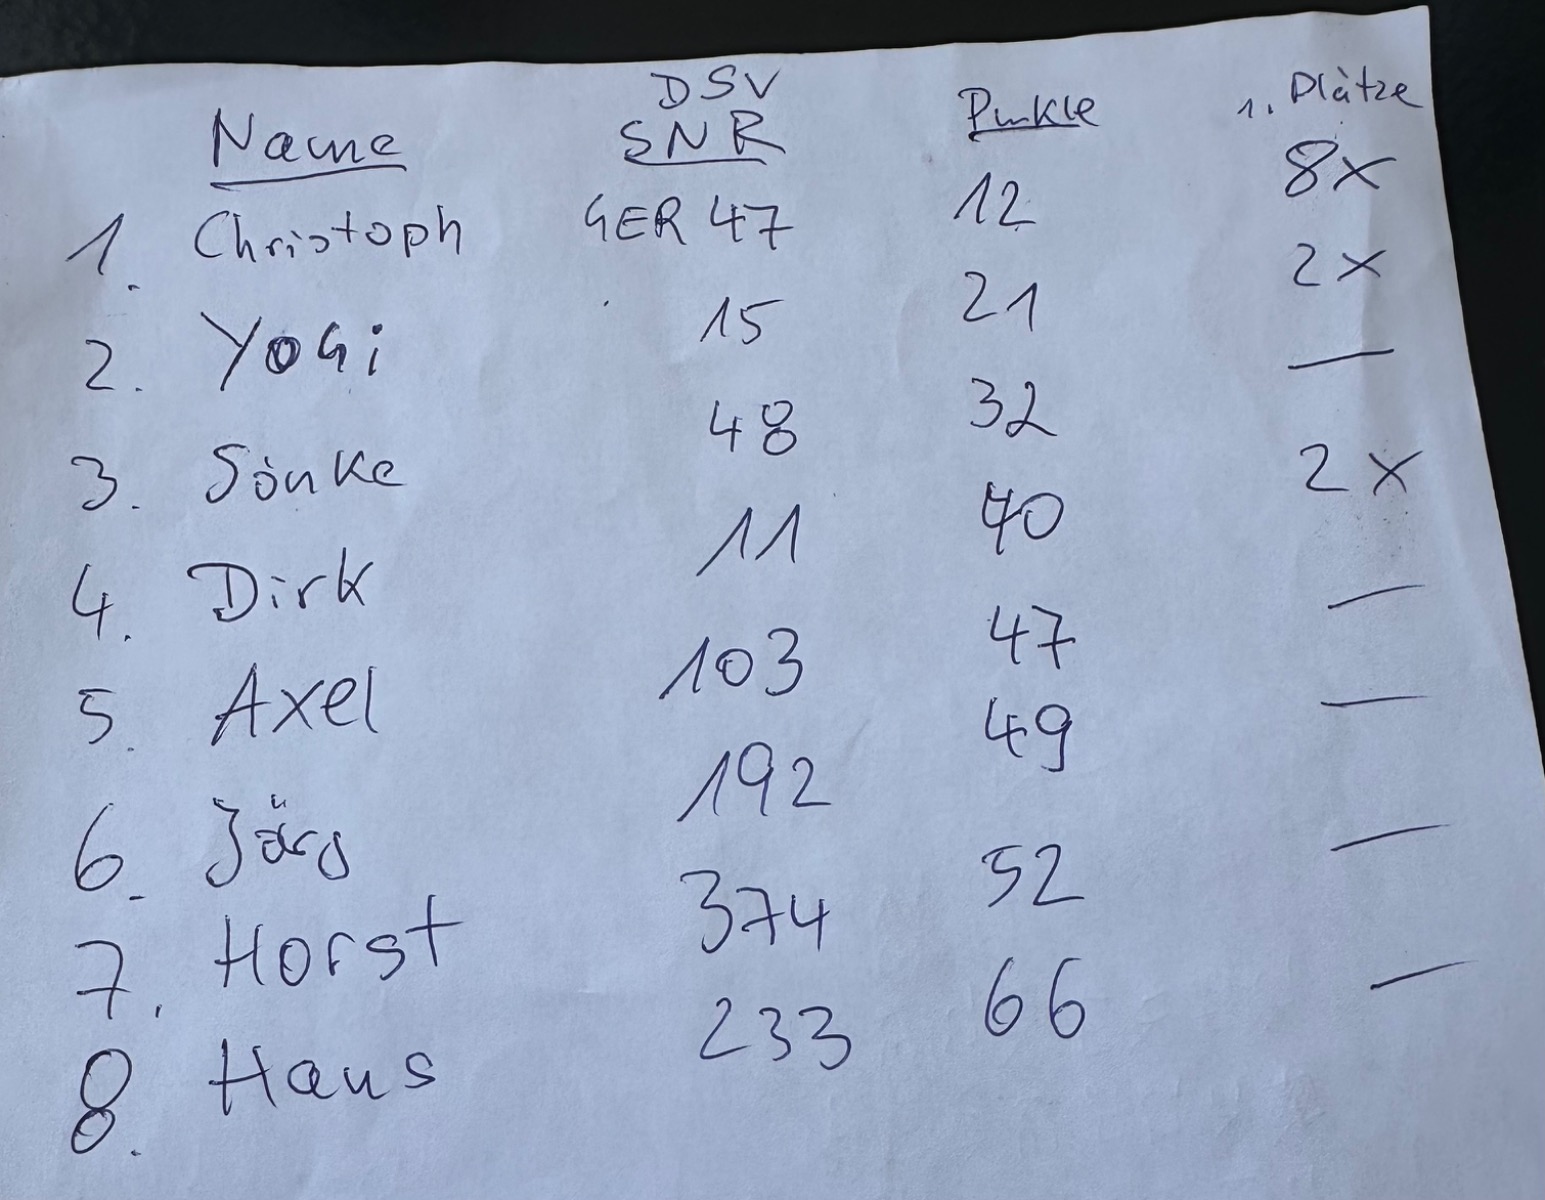 Name DSV SNR Punkte 1. Plätze
1. Christoph GER 47 12 8x
2. YOGi 15 21 2x
3. Sönke 48 32 —
4. Dirk 11 40 2x
5. Axel 103 47 —
6. Jörg 192 49 —
7. Horst 374 52 —
8. Hans 233 66 —